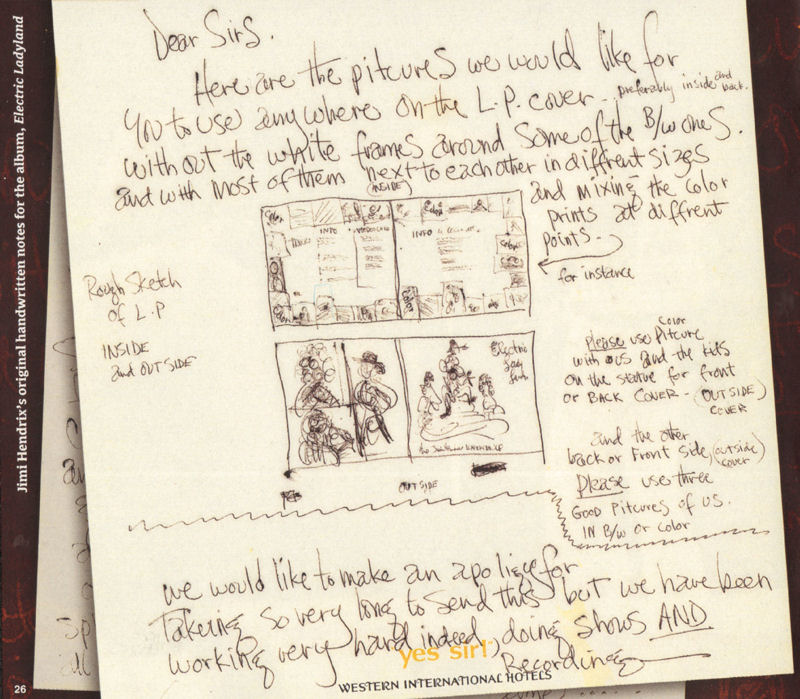 Jimi Hendrix's original handwritten notes for the album, Electric Ladyland
Dear Sirs.
Here are the pitcures we would like for
you to use anywhere on the L.P. cover - preferably inside and back.
without the white frames around some of the B/W ones.
and with most of them next to each other in diffrent sizes
(INSIDE)
and mixing the color
prints at diffrent
points -
for instance
INFO
INFO
Color
Rough Sketch
of L.P
INSIDE
and OUTSIDE
Electric
Lady
Land
Color
Please use Pitcure
with us and the kids
on the statue for front
or BACK COVER - (OUTSIDE)
COVER
and the other
back or Front side, (outside
cover)
Please use three
GOOD Pitcures of US.
IN B/W or color
OUTSIDE
we would like to make an apoligy for
Takeing so very long to send this but we have been
working very hard indeed, doing shows AND
Recording
yes sir!
WESTERN INTERNATIONAL HOTELS
26